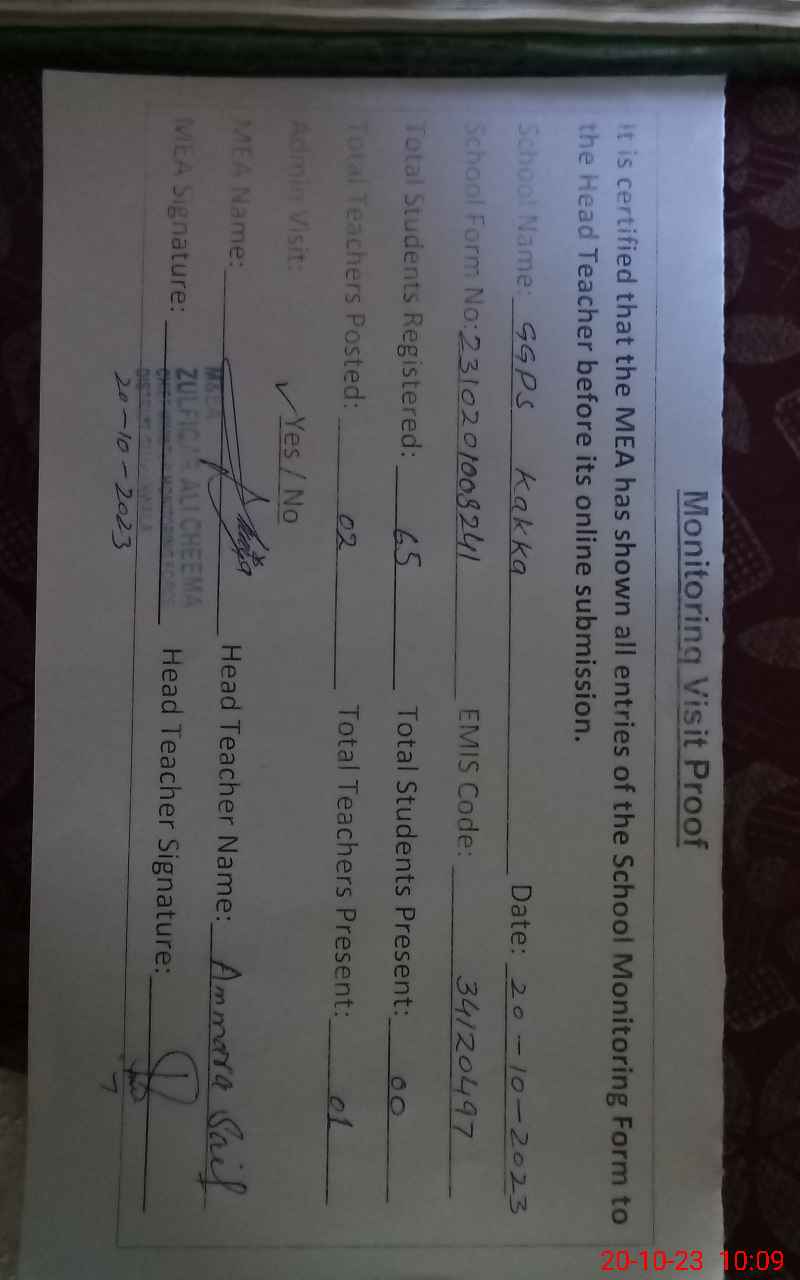 Monitoring Visit Proof
It is certified that the MEA has shown all entries of the School Monitoring Form to
the Head Teacher before its online submission.
School Name: GGPS Kakka Date: 20-10-2023
School Form No: 2310201008241 EMIS Code: 34120497
Total Students Registered: 65 Total Students Present: 00
Total Teachers Posted: 02 Total Teachers Present: 01
Admin Visit: ✓Yes / No
MEA Name: Head Teacher Name: Ammara Saif
MEA
ZULFIQAR ALI CHEEMA
MEA Signature: Head Teacher Signature:
20-10-2023
20-10-23 10:09